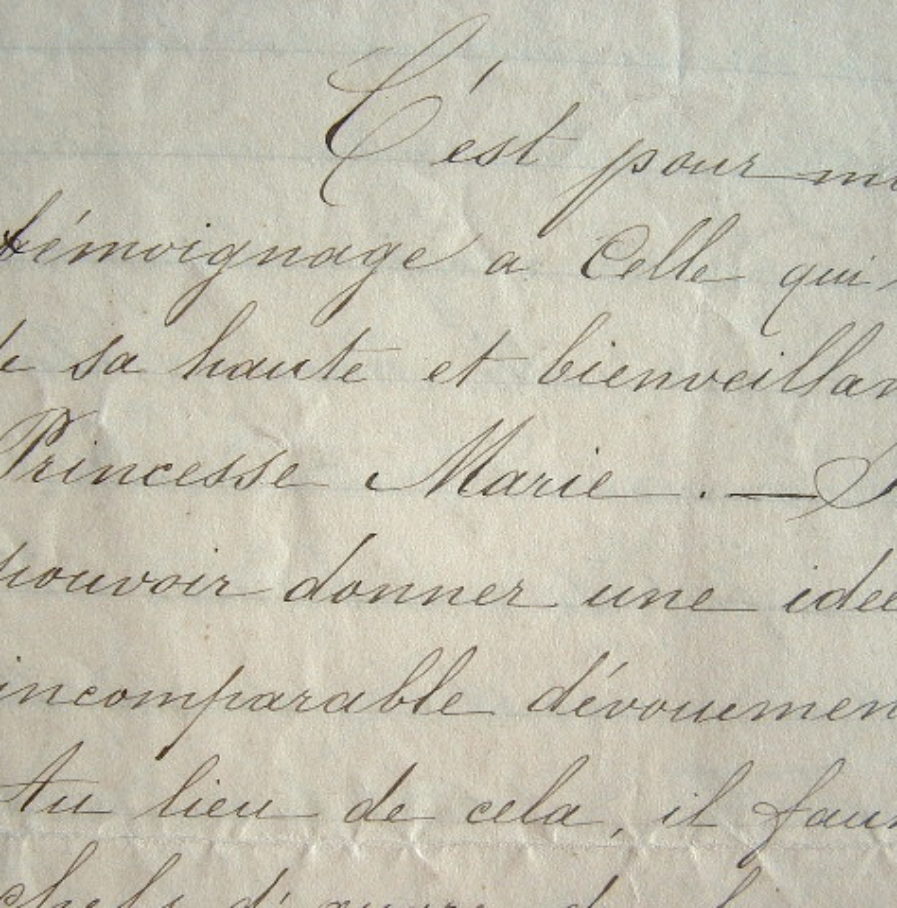 C'est pour
témoignage a Celle qui
sa haute et bienveillan
Princesse Marie . —
pouvoir donner une idee
incomparable dévouemen
Au lieu de cela, il fau
chefs d'